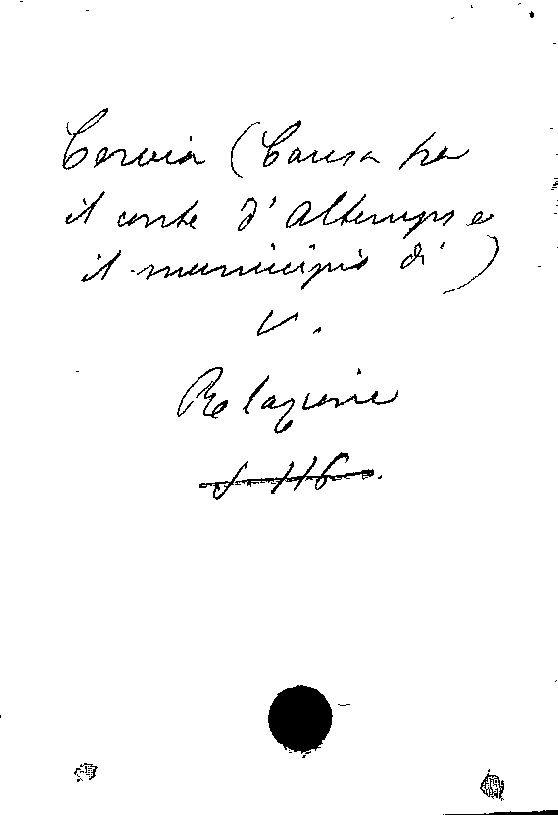 Cervia (Causa fra
il conte d'Altemps e
il municipio di)
V.
Relazione